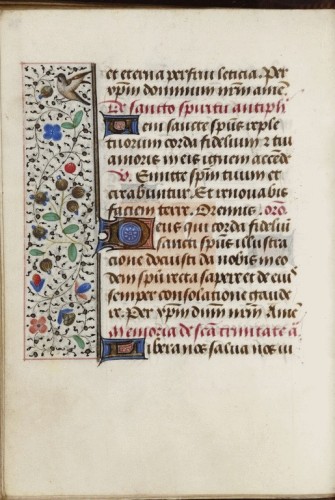 et eterna perfrui leticia. Per
xp̄m dominum nr̄m amē
De sancto spiritu antiph
Ueni sancte sp̄us reple
tuorum corda fidelium ⁊ tui
amoris in eis ignem accēde
V. Emitte sp̄m tuum et
creabuntur. Et renovabis
faciem terre. Oremus. orō
Deus qui corda fideliū
sancti sp̄us illustra
cione docuisti da nobis in eo
dem sp̄u recta sapere et de eius
semper consolatione gaude
re. Per xp̄m dn̄m nr̄m Amē
Memoria de sc̄a trinitate ā
Libera nos salva nos iu